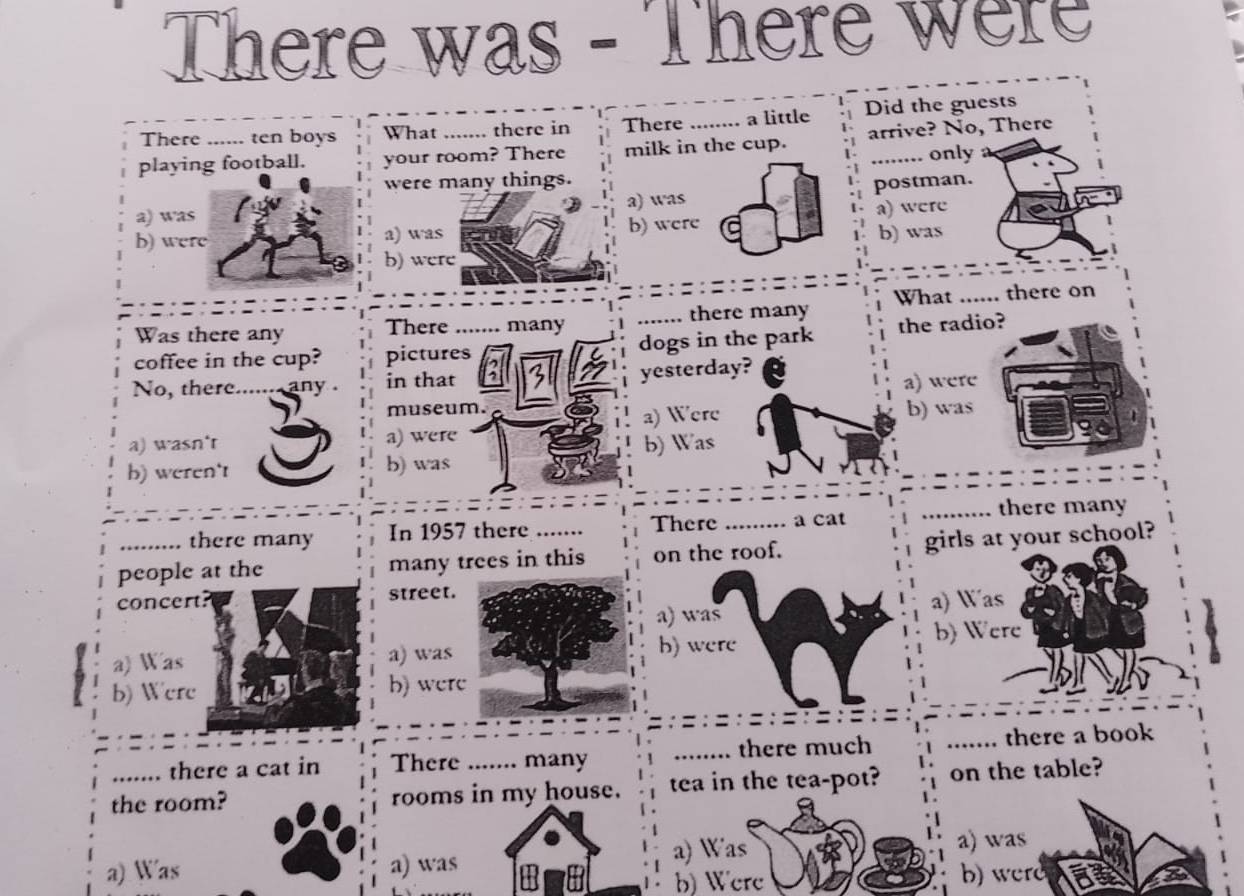 There was - There were
There ...... ten boys
playing football.
a) was
b) were
What ....... there in
your room? There
were many things.
a) was
b) were
There ........ a little
milk in the cup.
a) was
b) were
Did the guests
arrive? No, There
........ only a
postman.
a) were
b) was
Was there any
coffee in the cup?
No, there....... any .
a) wasn't
b) weren't
There ....... many
pictures
in that
museum.
a) were
b) was
....... there many
dogs in the park
yesterday?
a) Were
b) Was
What ...... there on
the radio?
a) were
b) was
......... there many
people at the
concert?
a) Was
b) Were
In 1957 there .......
many trees in this
street.
a) was
b) were
There ......... a cat
on the roof.
a) was
b) were
.......... there many
girls at your school?
a) Was
b) Were
....... there a cat in
the room?
a) Was
There ....... many
rooms in my house.
a) was
........ there much
tea in the tea-pot?
a) Was
b) Were
....... there a book
on the table?
a) was
b) were